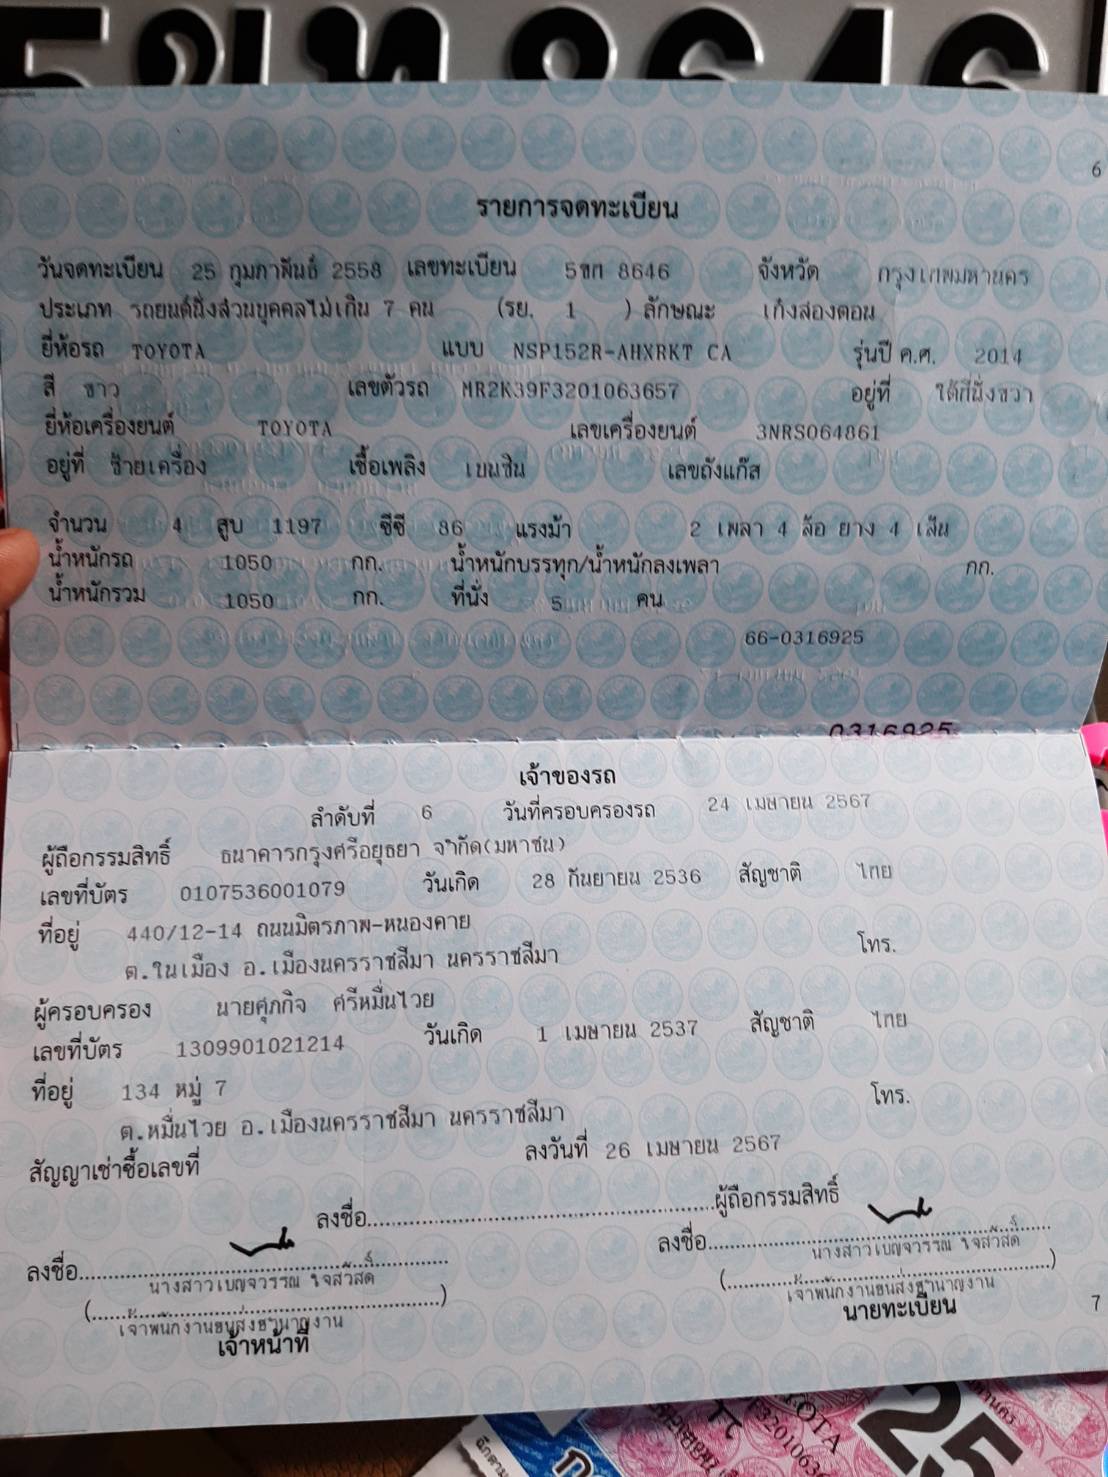 5ขท 8646
6
รายการจดทะเบียน
วันจดทะเบียน 25 กุมภาพันธ์ 2558 เลขทะเบียน 5ขท 8646 จังหวัด กรุงเทพมหานคร
ประเภท รถยนต์นั่งส่วนบุคคลไม่เกิน 7 คน (รย. 1 ) ลักษณะ เก๋งสองตอน
ยี่ห้อรถ TOYOTA แบบ NSP152R-AHXRKT CA รุ่นปี ค.ศ. 2014
สี ขาว เลขตัวรถ MR2K39F3201063657 อยู่ที่ ใต้ที่นั่งขวา
ยี่ห้อเครื่องยนต์ TOYOTA เลขเครื่องยนต์ 3NRS064861
อยู่ที่ ซ้ายเครื่อง เชื้อเพลิง เบนซิน เลขถังแก๊ส
จำนวน 4 สูบ 1197 ซีซี 86 แรงม้า 2 เพลา 4 ล้อ ยาง 4 เส้น
น้ำหนักรถ 1050 กก. น้ำหนักบรรทุก/น้ำหนักลงเพลา กก.
น้ำหนักรวม 1050 กก. ที่นั่ง 5 คน
66-0316925
0316925
เจ้าของรถ
ลำดับที่ 6 วันที่ครอบครองรถ 24 เมษายน 2567
ผู้ถือกรรมสิทธิ์ ธนาคารกรุงศรีอยุธยา จำกัด(มหาชน)
เลขที่บัตร 0107536001079 วันเกิด 28 กันยายน 2536 สัญชาติ ไทย
ที่อยู่ 440/12-14 ถนนมิตรภาพ-หนองคาย
ต.ในเมือง อ.เมืองนครราชสีมา นครราชสีมา โทร.
ผู้ครอบครอง นายศุภกิจ ศรีหมื่นไวย
เลขที่บัตร 1309901021214 วันเกิด 1 เมษายน 2537 สัญชาติ ไทย
ที่อยู่ 134 หมู่ 7
ต.หมื่นไวย อ.เมืองนครราชสีมา นครราชสีมา โทร.
สัญญาเช่าซื้อเลขที่ ลงวันที่ 26 เมษายน 2567
ลงชื่อ........................................ผู้ถือกรรมสิทธิ์
ลงชื่อ........................................ ลงชื่อ........................................
นางสาวเบญจวรรณ ใจสวัสดิ์ นางสาวเบญจวรรณ ใจสวัสดิ์
(........................................) (........................................)
เจ้าพนักงานขนส่งชำนาญงาน เจ้าพนักงานขนส่งชำนาญงาน
เจ้าหน้าที่ นายทะเบียน
7
25